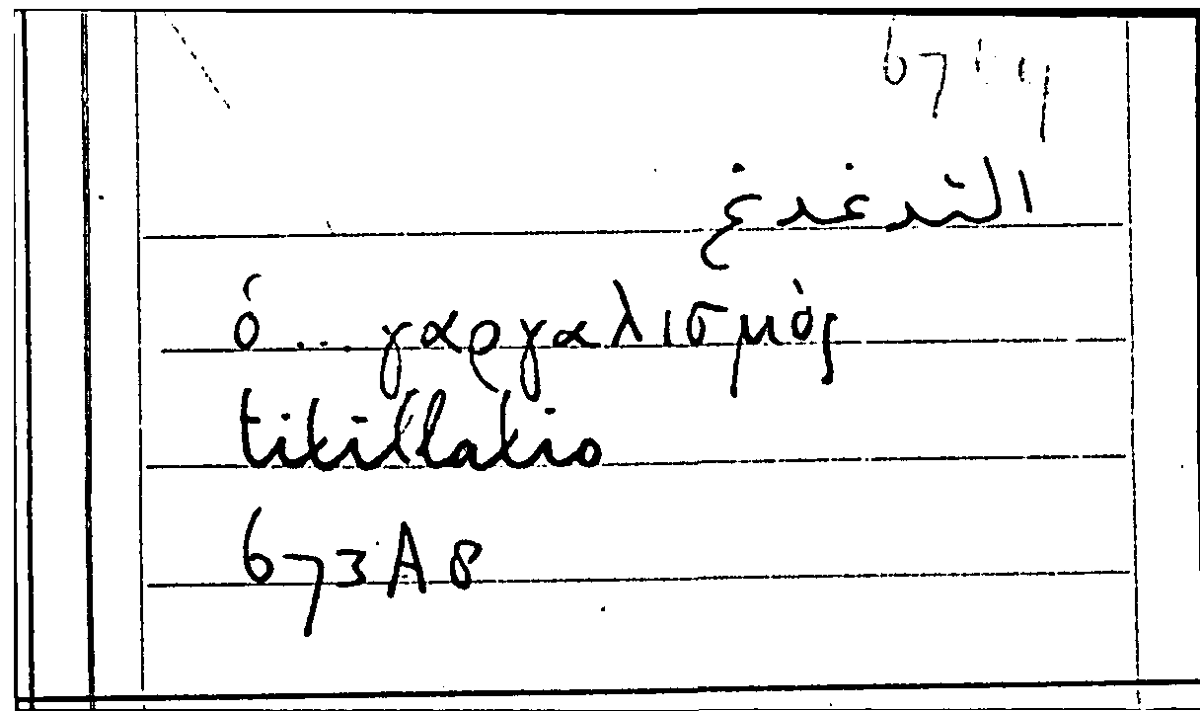 التدغدغ
ὁ...γαργαλισμὸς
titillatio
673A8